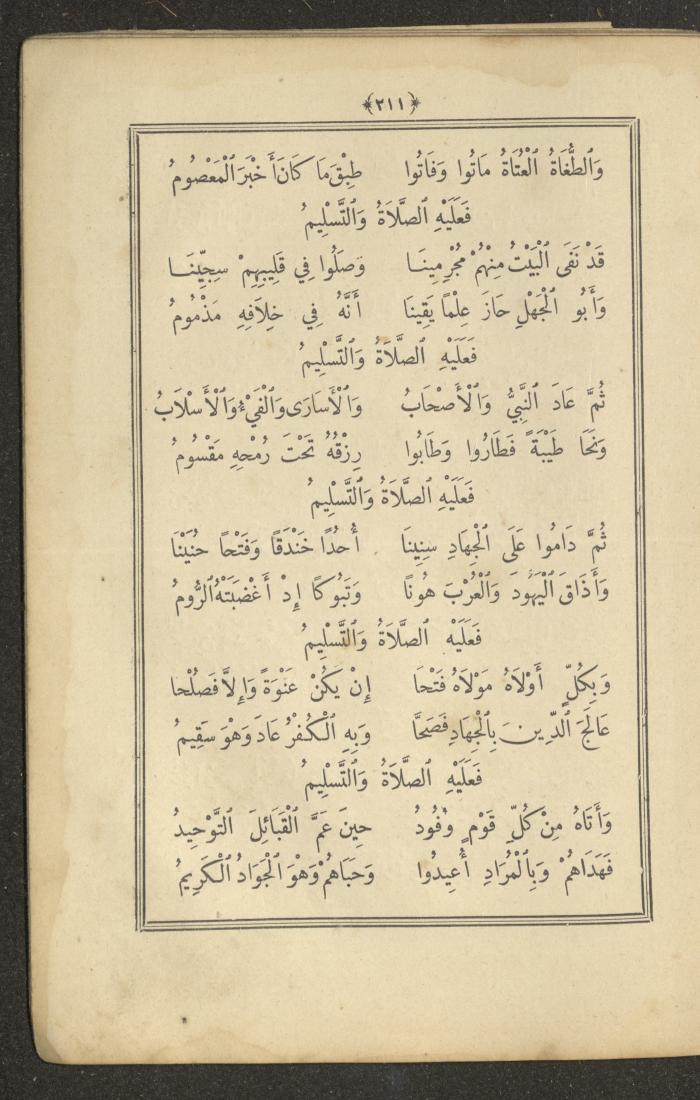 ﴿٢١١﴾
وَٱلطُّغَاةُ ٱلْعُتَاةُ مَاتُوا وَفَاتُوا طِبْقَ مَا كَانَ أَخْبَرَ ٱلْمَعْصُومُ
فَعَلَيْهِ ٱلصَّلَاةُ وَٱلتَّسْلِيمُ
قَدْ نَفَى ٱلْبَيْتُ مِنْهُمْ مُجْرِمِينَا وَصَلُوا فِي قَلِيبِهِمْ سِجِّينَا
وَأَبُو ٱلْجَهْلِ حَازَ عِلْمًا يَقِينَا أَنَّهُ فِي خِلَافِهِ مَذْمُومُ
فَعَلَيْهِ ٱلصَّلَاةُ وَٱلتَّسْلِيمُ
ثُمَّ عَادَ ٱلنَّبِيُّ وَٱلْأَصْحَابُ وَٱلْأَسَارَى وَٱلْفَيْءُ وَٱلْأَسْلَابُ
وَنَحَا طَيْبَةً فَطَارُوا وَطَابُوا رِزْقُهُ تَحْتَ رُمْحِهِ مَقْسُومُ
فَعَلَيْهِ ٱلصَّلَاةُ وَٱلتَّسْلِيمُ
ثُمَّ دَامُوا عَلَى ٱلْجِهَادِ سِنِينَا أُحُدًا خَنْدَقًا وَفَتْحًا حُنَيْنَا
وَأَذَاقَ ٱلْيَهُودَ وَٱلْعُرْبَ هُونًا وَتَبُوكًا إِذْ أَغْضَبَتْهُ ٱلرُّومُ
فَعَلَيْهِ ٱلصَّلَاةُ وَٱلتَّسْلِيمُ
وَبِكُلٍّ أَوْلَاهُ مَوْلَاهُ فَتْحَا إِنْ يَكُنْ عَنْوَةً وَإِلَّا فَصُلْحَا
عَالَجَ ٱلدِّينَ بِٱلْجِهَادِ فَصَحَّا وَبِهِ ٱلْكُفْرُ عَادَ وَهْوَ سَقِيمُ
فَعَلَيْهِ ٱلصَّلَاةُ وَٱلتَّسْلِيمُ
وَأَتَاهُ مِنْ كُلِّ قَوْمٍ وُفُودُ حِينَ عَمَّ ٱلْقَبَائِلَ ٱلتَّوْحِيدُ
فَهَدَاهُمْ وَبِٱلْمُرَادِ أُعِيدُوا وَحَبَاهُمْ وَهْوَ ٱلْجَوَادُ ٱلْكَرِيمُ